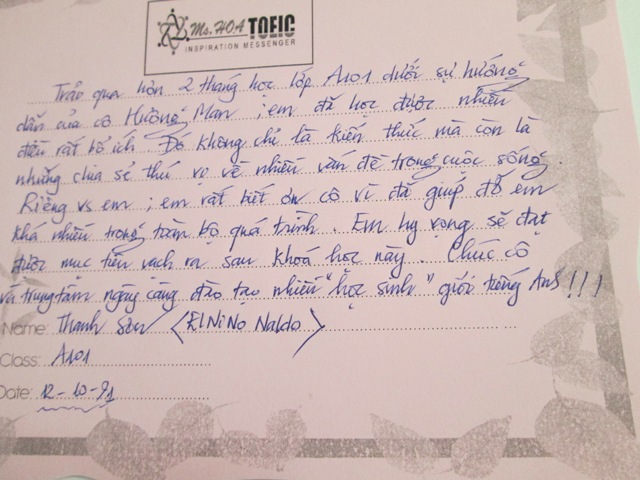 Ms. HOA TOEIC
INSPIRATION MESSENGER
Trải qua hơn 2 tháng học lớp A101 dưới sự hướng
dẫn của cô Hương Man ; em đã học được nhiều
điều rất bổ ích. Đó không chỉ là kiến thức mà còn là
những chia sẻ thú vị về nhiều vấn đề trong cuộc sống.
Riêng vs em ; em rất biết ơn cô vì đã giúp đỡ em
khá nhiều trong toàn bộ quá trình. Em hy vọng sẽ đạt
được mục tiêu vạch ra sau khoá học này. Chúc cô
và trung tâm ngày càng đào tạo nhiều "học sinh" giỏi tiếng Anh!!!
Name: Thanh Sơn <ElNiNo Naldo>
Class: A101
Date: 12-10-91